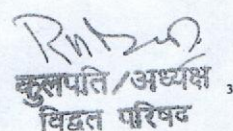 कुलपति/अध्यक्ष
विद्वत परिषद
3